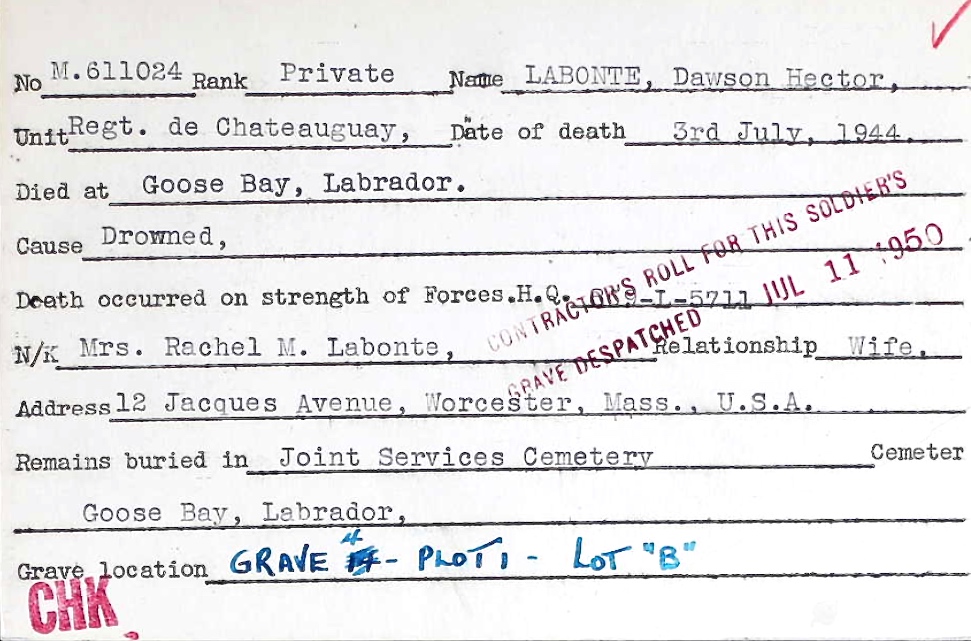 No M.611024 Rank Private Name LABONTE, Dawson Hector,
Unit Regt. de Chateauguay, Date of death 3rd July, 1944.
Died at Goose Bay, Labrador.
Cause Drowned,
Death occurred on strength of Forces.H.Q. 689-L-5711
CONTRACTOR'S ROLL FOR THIS SOLDIER'S
GRAVE DESPATCHED JUL 11 1950
N/K Mrs. Rachel M. Labonte, Relationship Wife,
Address 12 Jacques Avenue, Worcester, Mass., U.S.A.
Remains buried in Joint Services Cemetery Cemeter
Goose Bay, Labrador,
Grave location GRAVE 4 - PLOT 1 - LOT "B"
CHK